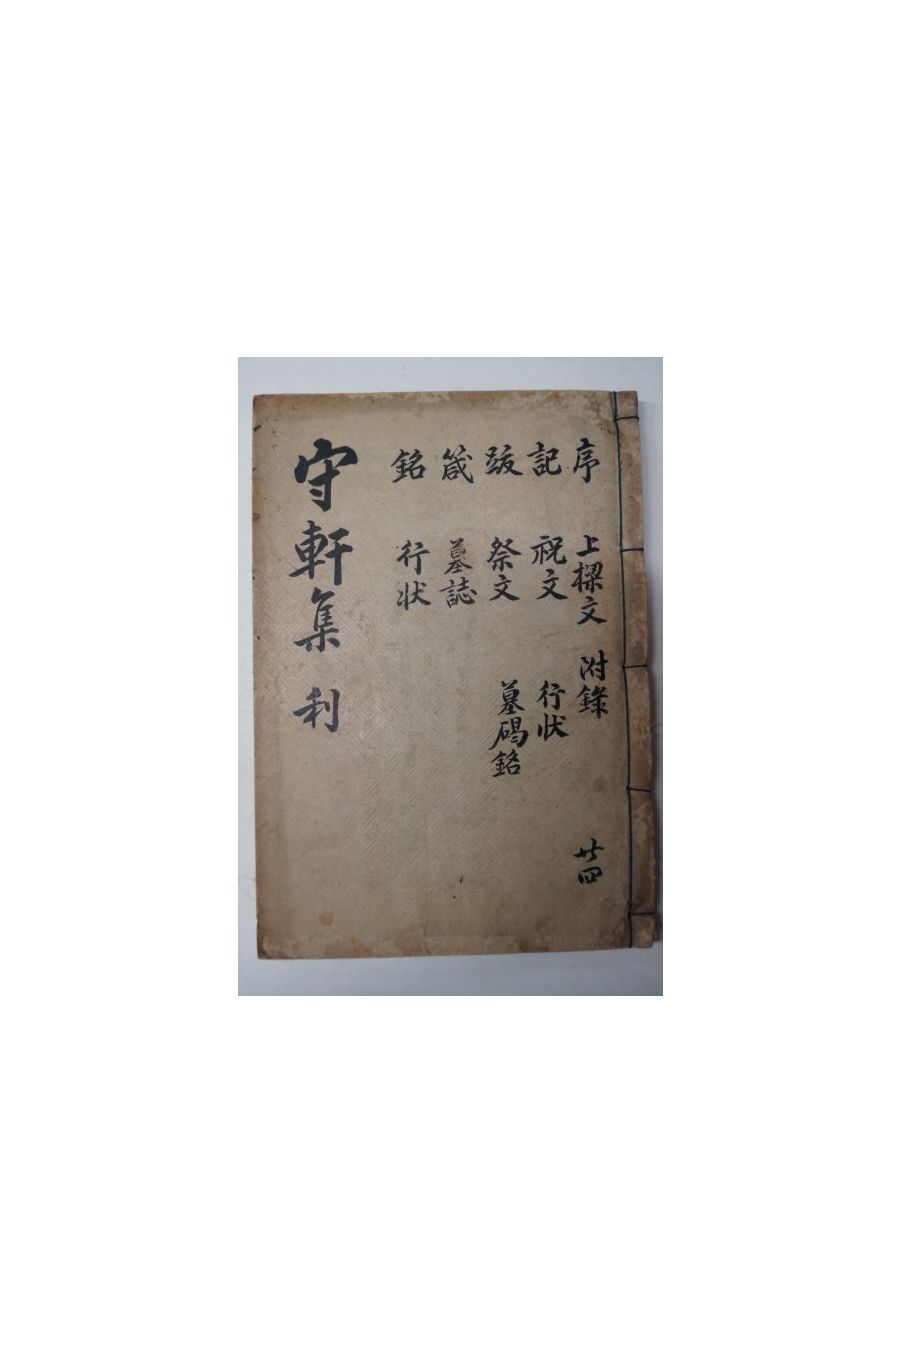 序 上樑文 附錄 廿四
記 祝文 行状
跋 祭文 墓碣銘
箴 墓誌
銘 行状
守軒集 利